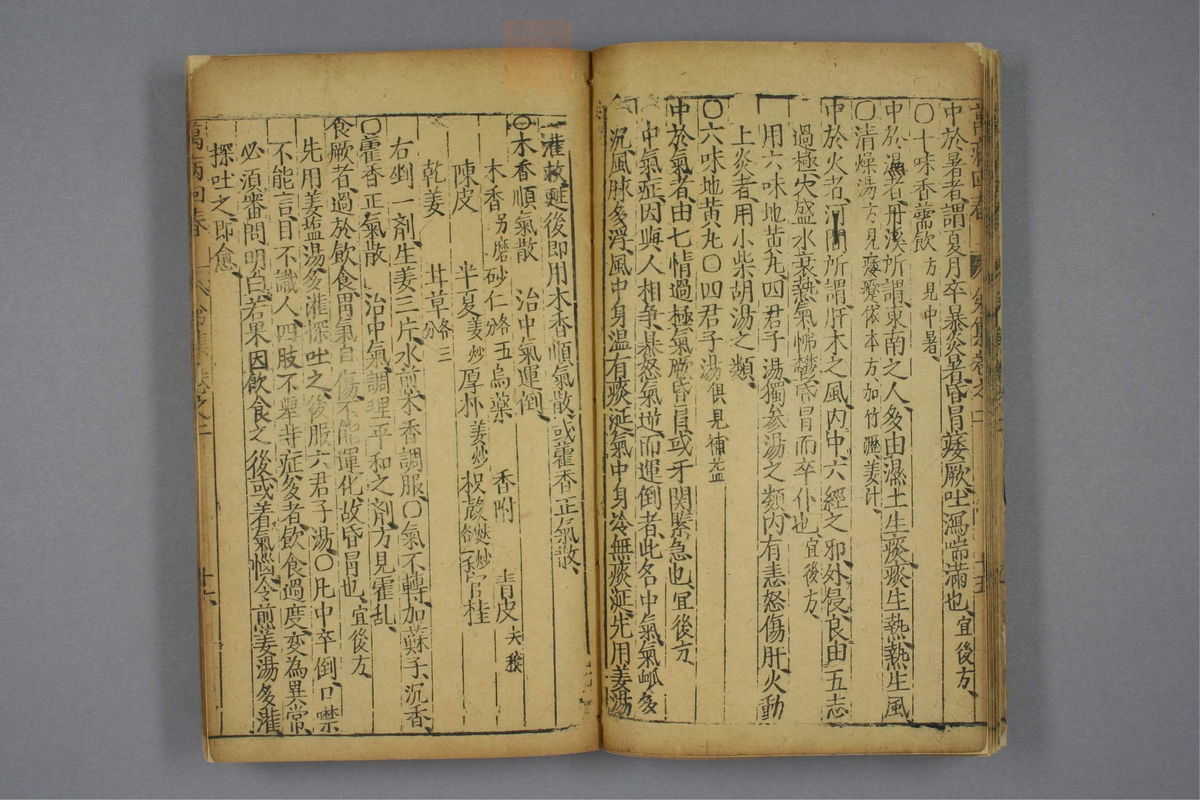 中於暑者謂夏月卒暴炎暑昏冒痿厥吐瀉喘滿也宜後方
〇十味香薷飲方見中暑
中於濕者丹溪所謂東南之人多由濕土生痰痰生熱熱生風
〇清燥湯方見痿躄依本方加竹瀝姜汁
中於火者河間所謂肝木之風內中六經之邪外侵良由五志
過極火盛水衰熱氣怫鬱昏冒而卒仆也宜後方
用六味地黃丸四君子湯獨參湯之類內有恚怒傷肝火動
上炎者用小柴胡湯之類
〇六味地黃丸〇四君子湯俱見補益
中於氣者由七情過極氣厥昏冒或牙関緊急也宜後方
中氣症因與人相爭暴怒氣逆而運倒者此名中氣氣岻多
沉風脉多浮風中身溫有痰涎氣中身冷無痰涎先用姜湯
灌救甦後即用木香順氣散或藿香正氣散
〇木香順氣散 治中氣運倒
木香另磨 砂仁各五分 烏藥 香附 青皮去穰
陳皮 半夏姜炒 厚朴姜炒 枳殼麩炒各一錢 官桂
乾姜 甘草各三分
右剉一劑生姜三片水煎木香調服〇氣不轉加蘇子沉香
〇霍香正氣散 治中氣調理平和之劑方見霍乱
食厥者過於飲食胃氣自傷不能運化故昏冒也宜後方
先用姜盐湯多灌探吐之後服六君子湯〇凡中卒倒口噤
不能言目不識人四肢不舉等症多者飲食過度变為異常
必須審問明白若果因飲食之後或着氣惱令煎姜湯多灌
探吐之即愈
萬病回春
卷之二